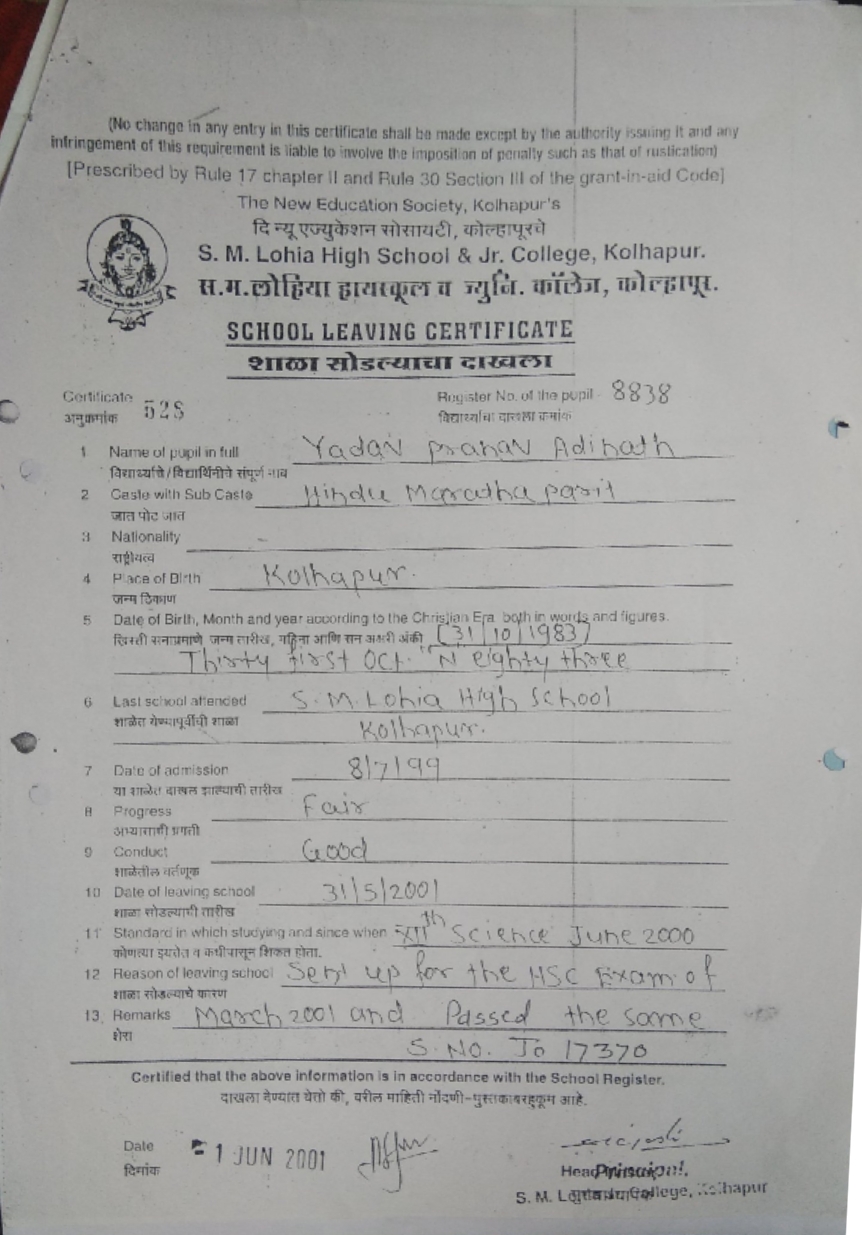 (No change in any entry in this certificate shall be made except by the authority issuing it and any
infringement of this requirement is liable to involve the imposition of penalty such as that of rustication)
[Prescribed by Rule 17 chapter II and Rule 30 Section III of the grant-in-aid Code]
The New Education Society, Kolhapur's
दि न्यू एज्युकेशन सोसायटी, कोल्हापूरचे
S. M. Lohia High School & Jr. College, Kolhapur.
स.म.लोहिया हायस्कूल व ज्युनि. कॉलेज, कोल्हापूर.
SCHOOL LEAVING CERTIFICATE
शाळा सोडल्याचा दाखला
Certificate 528 Register No. of the pupil - 8838
अनुक्रमांक विद्यार्थ्याचा दाखला क्रमांक
1 Name of pupil in full Yadav Pranav Adinath
विद्यार्थ्याचे/विद्यार्थिनीचे संपूर्ण नाव
2 Caste with Sub Caste Hindu Maratha Parit
जात पोट जात
3 Nationality -
राष्ट्रीयत्व
4 Place of Birth Kolhapur.
जन्म ठिकाण
5 Date of Birth, Month and year according to the Christian Era both in words and figures.
ख्रिस्ती सनाप्रमाणे जन्म तारीख, महिना आणि सन अक्षरी अंकी (31/10/1983)
Thirty first Oct. "N eighty three
6 Last school attended S. M. Lohia High School
शाळेत येण्यापूर्वीची शाळा Kolhapur.
7 Date of admission 8/7/99
या शाळेत दाखल झाल्याची तारीख
8 Progress Fair
अभ्यासाची प्रगती
9 Conduct Good
शाळेतील वर्तणूक
10 Date of leaving school 31/5/2001
शाळा सोडल्याची तारीख
11 Standard in which studying and since when XIIth Science June 2000
कोणत्या इयत्तेत व कधीपासून शिकत होता.
12 Reason of leaving school Sent up for the HSC Exam of
शाळा सोडल्याचे कारण
13 Remarks March 2001 and Passed the same
शेरा S. NO. Jo 17370
Certified that the above information is in accordance with the School Register.
दाखला देण्यात येतो की, वरील माहिती नोंदणी-पुस्तकाबरहुकूम आहे.
Date 1 JUN 2001
दिनांक
Principal.
S. M. Lohia Jr. College, Kolhapur